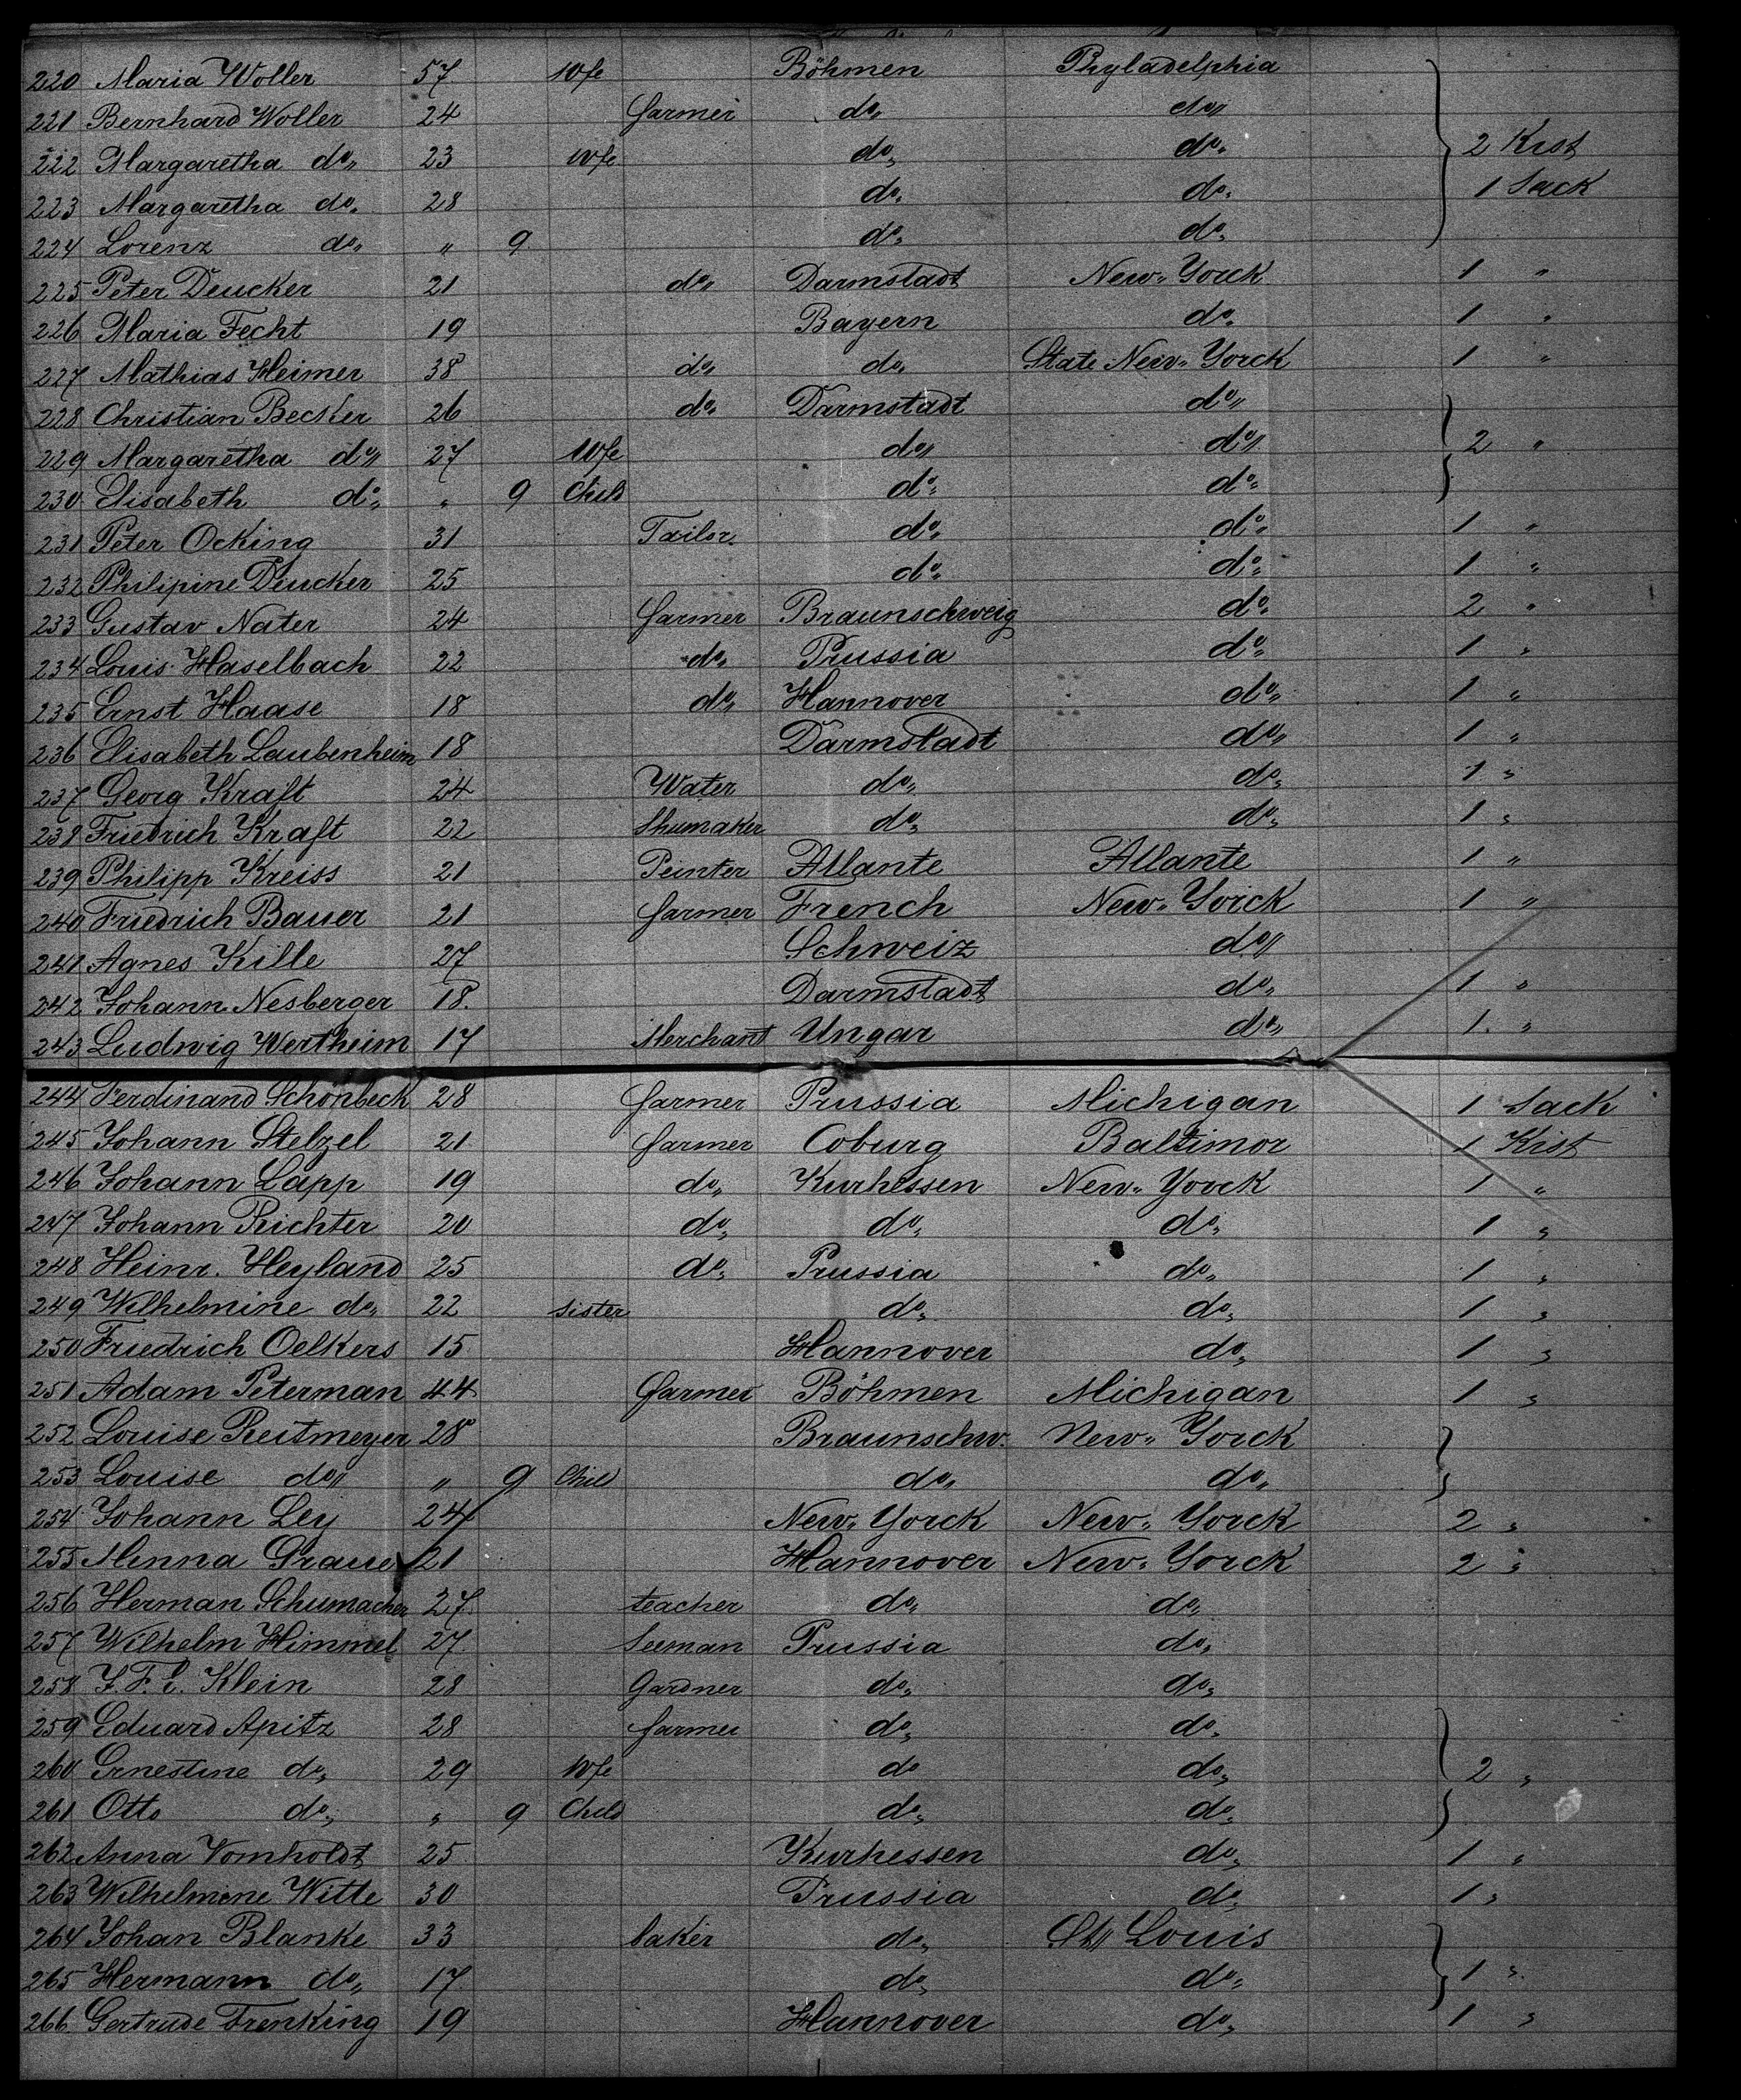 220 Maria Woller 57 Wfe Böhmen Phyladelphia
221 Bernhard Woller 24 farmer do do
222 Margaretha do 23 Wfe do do 2 Kist
223 Margaretha do 28 do do 1 Sack
224 Lorenz do " 9 do do
225 Peter Deucker 21 do Darmstadt New-Yorck 1 "
226 Maria Fecht 19 Bayern do 1 "
227 Mathias Heimer 38 do do State New-Yorck 1 "
228 Christian Becker 26 do Darmstadt do
229 Margaretha do 27 Wfe do do 2 "
230 Elisabeth do " 9 Child do do
231 Peter Ocking 31 Tailor do do 1 "
232 Philipine Deucker 25 do do 1 "
233 Gustav Nater 24 farmer Braunschweig do 2 "
234 Louis Haselbach 22 do Prussia do 1 "
235 Ernst Haase 18 do Hannover do 1 "
236 Elisabeth Laubenheim 18 Darmstadt do 1 "
237 Georg Kraft 24 Water do do 1 "
238 Friedrich Kraft 22 Shumaker do do 1 "
239 Philipp Kreiss 21 Peinter Atlante Atlante 1 "
240 Friedrich Bauer 21 farmer French New-Yorck 1 "
241 Agnes Kille 27 Schweiz do
242 Johann Nesberger 18 Darmstadt do 1 "
243 Ludwig Wertheim 17 Merchant Ungar do 1 "
244 Ferdinand Schönbeck 28 farmer Prussia Michigan 1 Sack
245 Johann Stelzel 21 farmer Coburg Baltimor 1 Kist
246 Johann Lapp 19 do Kurhessen New-Yorck 1 "
247 Johann Richter 20 do do do 1 "
248 Heinr. Heyland 25 do Prussia do 1 "
249 Wilhelmine do 22 sister do do 1 "
250 Friedrich Oelkers 15 Hannover do 1 "
251 Adam Peterman 44 farmer Böhmen Michigan 1 "
252 Louise Reitmeyer 28 Braunschw. New-Yorck
253 Louise do " 9 Child do do
254 Johann Ley 24 New-Yorck New-Yorck 2 "
255 Minna Graue 21 Hannover New-Yorck 2 "
256 Herman Schumacher 27 teacher do do
257 Wilhelm Himmel 27 Seeman Prussia do
258 J. F. C. Klein 28 Gardner do do
259 Eduard Apitz 28 farmer do do
260 Ernestine do 29 Wfe do do 2 "
261 Otto do " 9 Child do do
262 Anna Vomholdt 25 Kurhessen do 1 "
263 Wilhelmine Witte 30 Prussia do 1 "
264 Johan Blanke 33 baker do St. Louis
265 Hermann do 17 do do 1 "
266 Gertrude Frenking 19 Hannover do 1 "